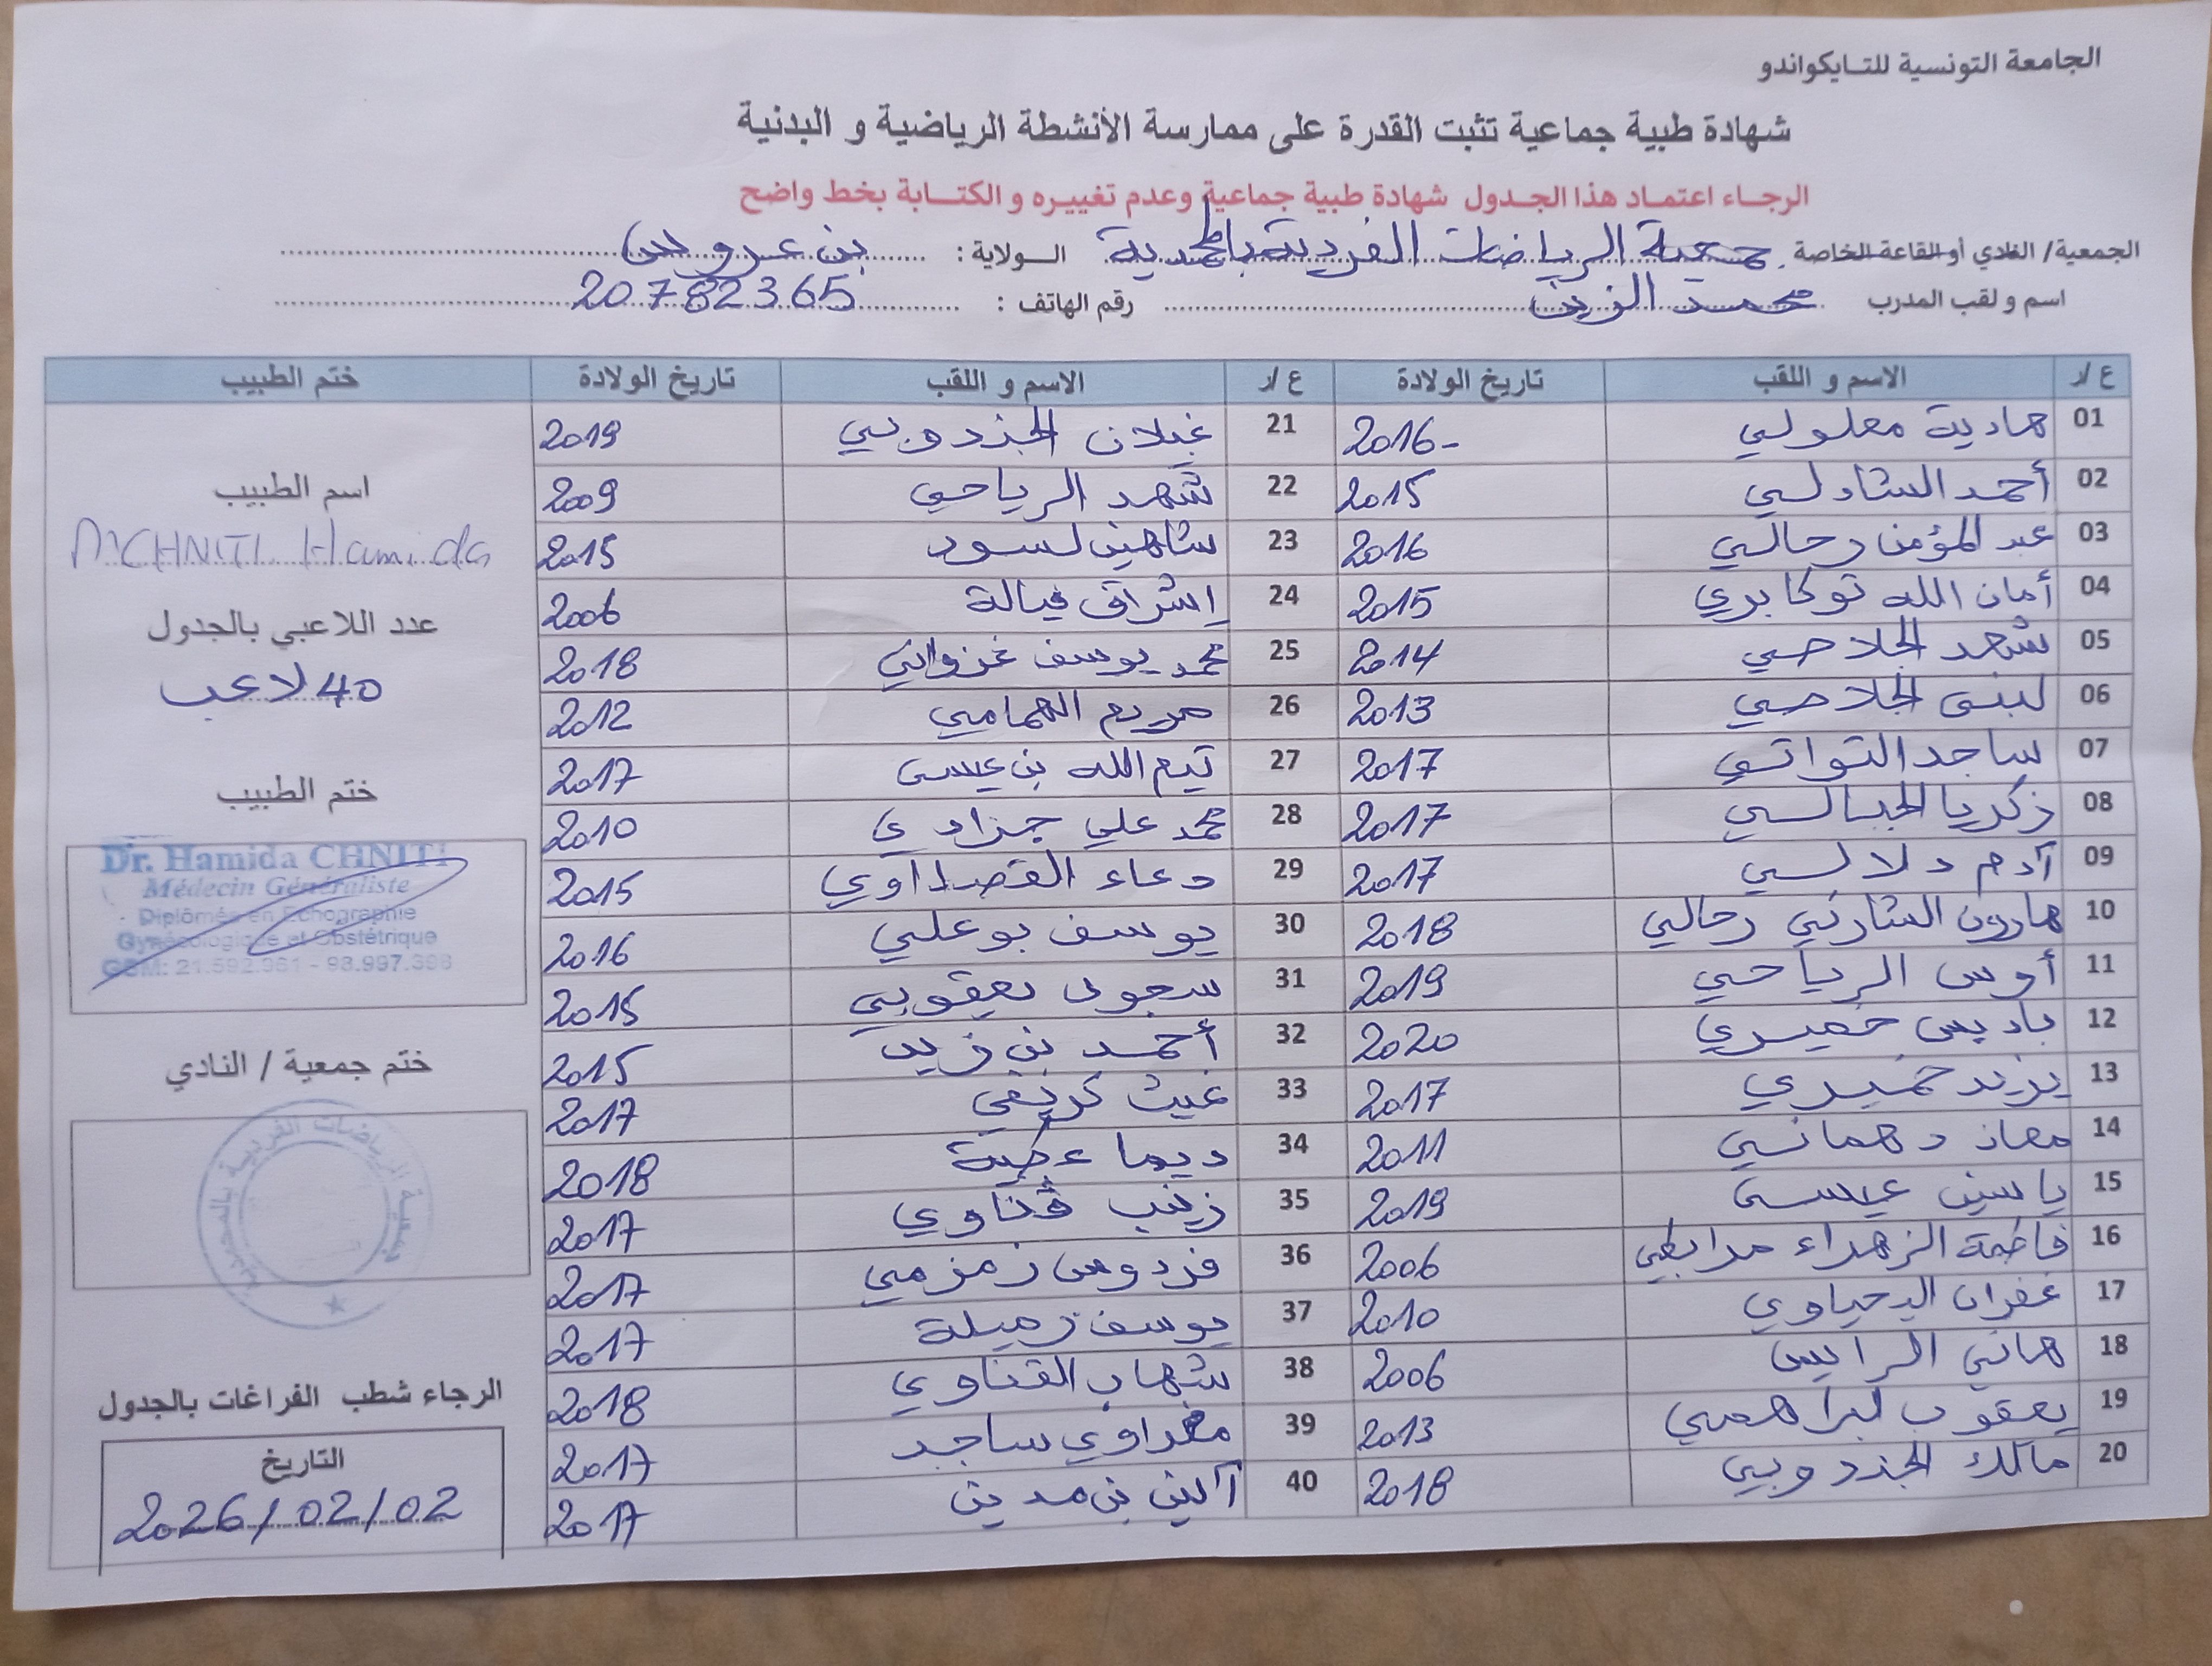 الجامعة التونسية للتايكواندو
شهادة طبية جماعية تثبت القدرة على ممارسة الأنشطة الرياضية و البدنية
الرجاء اعتماد هذا الجدول شهادة طبية جماعية وعدم تغييره و الكتابة بخط واضح
الجمعية/ النادي أو القاعة الخاصة جمعية الرياضات الفردية بالمحمدية الولاية : بن عروس
اسم و لقب المدرب محمد الزين رقم الهاتف : 20782365
ع/ر الاسم و اللقب تاريخ الولادة ع/ر الاسم و اللقب تاريخ الولادة ختم الطبيب
01 هادية معلولي 2016 21 غيلان الجندوبي 2019
02 أحمد الشادلي 2015 22 شهد الرياحي 2009
03 عبد المؤمن رحالي 2016 23 شاهين لسود 2015
04 أمان الله توكابري 2015 24 إشراق فيالة 2006
05 شهد الجلاصي 2014 25 محمد يوسف غزواني 2018
06 لبنى الجلاصي 2013 26 مريم الهمامي 2012
07 ساجد التواتي 2017 27 تيم الله بن عيسى 2017
08 زكريا الجبالي 2017 28 محمد علي جرادي 2010
09 آدم دلالي 2017 29 دعاء القصداوي 2015
10 هارون الشارني رحالي 2018 30 يوسف بوعلي 2016
11 أوس الرياحي 2019 31 سجود يعقوبي 2015
12 باديس خميري 2020 32 أحمد بن زيد 2015
13 يزيد خميري 2017 33 غيث كريفي 2017
14 معاذ دهماني 2011 34 ديما عجينة 2018
15 ياسين عيسى 2019 35 زينب ڨناوي 2017
16 فاطمة الزهراء مرابطي 2006 36 فردوس زمزمي 2017
17 غفران اليحياوي 2010 37 يوسف زميلة 2017
18 هاني الرايس 2006 38 شهاب القناوي 2018
19 يعقوب لبراهمي 2013 39 مغراوي ساجد 2017
20 مالك الجندوبي 2018 40 آلين بن مدين 2017
اسم الطبيب
Dr CHNITI Hamida
عدد اللاعبي بالجدول
40 لاعب
ختم الطبيب
Dr. Hamida CHNITI
Médecin Généraliste
Diplômée en Echographie
Gynécologique et Obstétrique
GSM: 21.592.961 - 98.997.398
ختم جمعية / النادي
جمعية الرياضات الفردية بالمحمدية
الرجاء شطب الفراغات بالجدول
التاريخ
2026/02/02